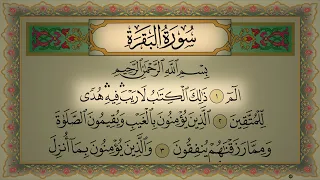 سُورَةُ البَقَرَةِ
بِسْمِ اللَّهِ الرَّحْمَٰنِ الرَّحِيمِ
الٓمٓ ١ ذَٰلِكَ ٱلْكِتَٰبُ لَا رَيْبَ ۛ فِيهِ ۛ هُدًى
لِّلْمُتَّقِينَ ٢ ٱلَّذِينَ يُؤْمِنُونَ بِٱلْغَيْبِ وَيُقِيمُونَ ٱلصَّلَوٰةَ
وَمِمَّا رَزَقْنَٰهُمْ يُنفِقُونَ ٣ وَٱلَّذِينَ يُؤْمِنُونَ بِمَآ أُنزِلَ